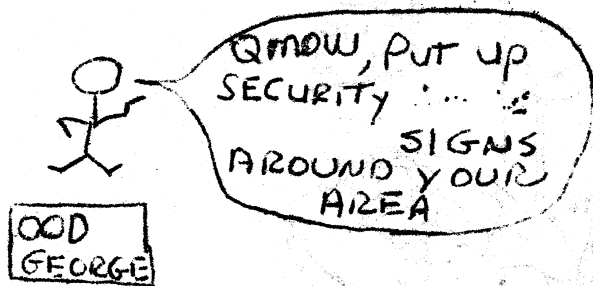 QMOW, PUT UP
SECURITY
SIGNS
AROUND YOUR
AREA
OOD
GEORGE